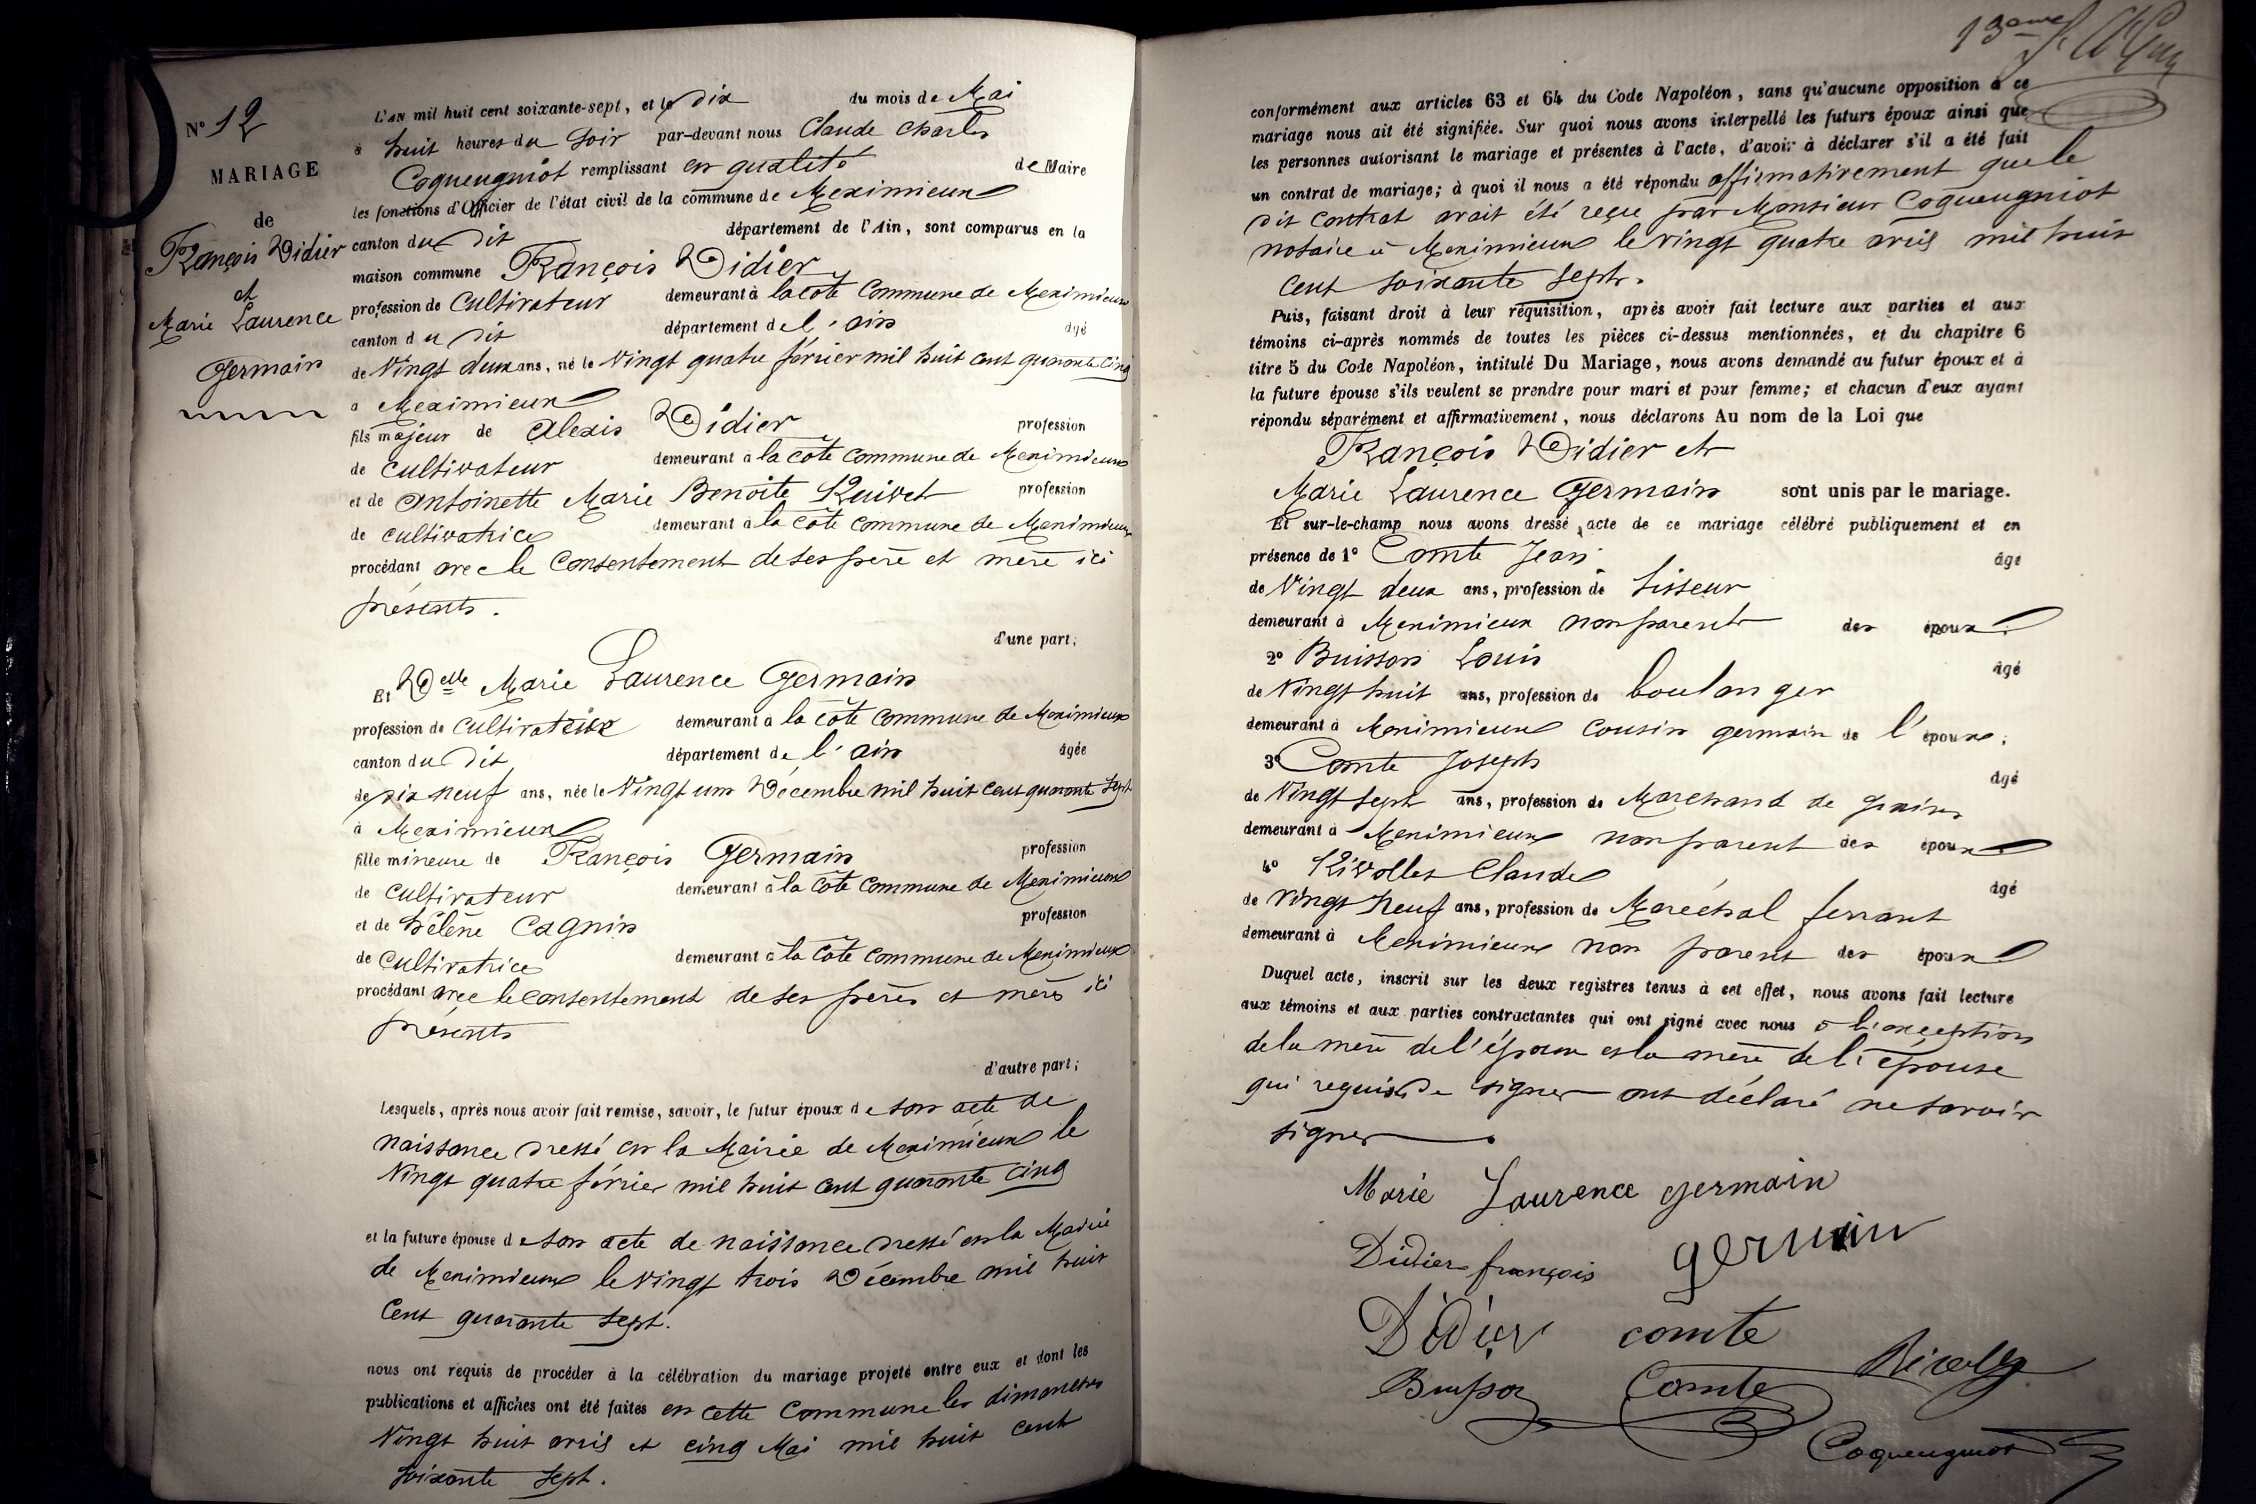 N° 12
MARIAGE
de
François Didier
et
Marie Laurence
Germain
L'AN mil huit cent soixante-sept, et le dix du mois de Mai
à huit heures du soir par-devant nous Claude Charles
Coqueugniot remplissant en qualité de Maire
les fonctions d'Officier de l'état civil de la commune de Meximieux
canton du dit département de l'Ain, sont comparus en la
maison commune François Didier
profession de Cultivateur demeurant à la côte Commune de Meximieux
canton du dit département de l'ain âgé
de Vingt deux ans, né le Vingt quatre février mil huit cent quarante cinq
à Meximieux
fils majeur de Alexis Didier profession
de cultivateur demeurant à la côte commune de Meximieux
et de Antoinette Marie Benoite Quivet profession
de cultivatrice demeurant à la côte commune de Meximieux
procédant avec le Consentement de ses père et mère ici
présents.
d'une part;
Et Delle Marie Laurence Germain
profession de cultivatrice demeurant à la côte commune de Meximieux
canton du dit département de l'ain âgée
de dix neuf ans, née le Vingt un Décembre mil huit cent quarante sept
à Meximieux
fille mineure de François Germain profession
de cultivateur demeurant à la côte commune de Meximieux
et de hélène Cagnin profession
de cultivatrice demeurant à la côte commune de Meximieux
procédant avec le consentement de ses père et mère ici
présents
d'autre part;
Lesquels, après nous avoir fait remise, savoir, le futur époux de son acte de
naissance dressé en la Mairie de Meximieux le
Vingt quatre février mil huit cent quarante cinq
et la future épouse de son acte de naissance dressé en la Mairie
de Meximieux le vingt trois Décembre mil huit
Cent quarante sept.
nous ont requis de procéder à la célébration du mariage projeté entre eux et dont les
publications et affiches ont été faites en cette Commune les dimanches
Vingt huit avril et cinq Mai mil huit cent
soixante sept.
13eme
conformément aux articles 63 et 64 du Code Napoléon, sans qu'aucune opposition à ce
mariage nous ait été signifiée. Sur quoi nous avons interpellé les futurs époux ainsi que
les personnes autorisant le mariage et présentes à l'acte, d'avoir à déclarer s'il a été fait
un contrat de mariage; à quoi il nous a été répondu affirmativement que le
dit Contrat avait été reçu par Monsieur Coqueugniot
notaire à Meximieux le vingt quatre avril mil huit
Cent soixante sept.
Puis, faisant droit à leur réquisition, après avoir fait lecture aux parties et aux
témoins ci-après nommés de toutes les pièces ci-dessus mentionnées, et du chapitre 6
titre 5 du Code Napoléon, intitulé Du Mariage, nous avons demandé au futur époux et à
la future épouse s'ils veulent se prendre pour mari et pour femme; et chacun d'eux ayant
répondu séparément et affirmativement, nous déclarons Au nom de la Loi que
François Didier et
Marie Laurence Germain sont unis par le mariage.
Et sur-le-champ nous avons dressé acte de ce mariage célébré publiquement et en
présence de 1° Comte Jean âgé
de Vingt deux ans, profession de tisseur
demeurant à Meximieux non parent des époux.
2° Buisson Louis âgé
de Vingt huit ans, profession de boulanger
demeurant à Meximieux cousin germain de l'épouse;
3° Comte Joseph âgé
de Vingt sept ans, profession de Marchand de grains
demeurant à Meximieux non parent des époux
4° Rivolles Claude âgé
de Vingt Neuf ans, profession de Maréchal ferrant
demeurant à Meximieux non parent des époux
Duquel acte, inscrit sur les deux registres tenus à cet effet, nous avons fait lecture
aux témoins et aux parties contractantes qui ont signé avec nous à l'exception
de la mère de l'époux et la mère de l'épouse
qui requis de signer ont déclaré ne savoir
signer
Marie Laurence germain
Didier françois germain
Didier comte
Buisson Comte Rivolle
Coqueugniot